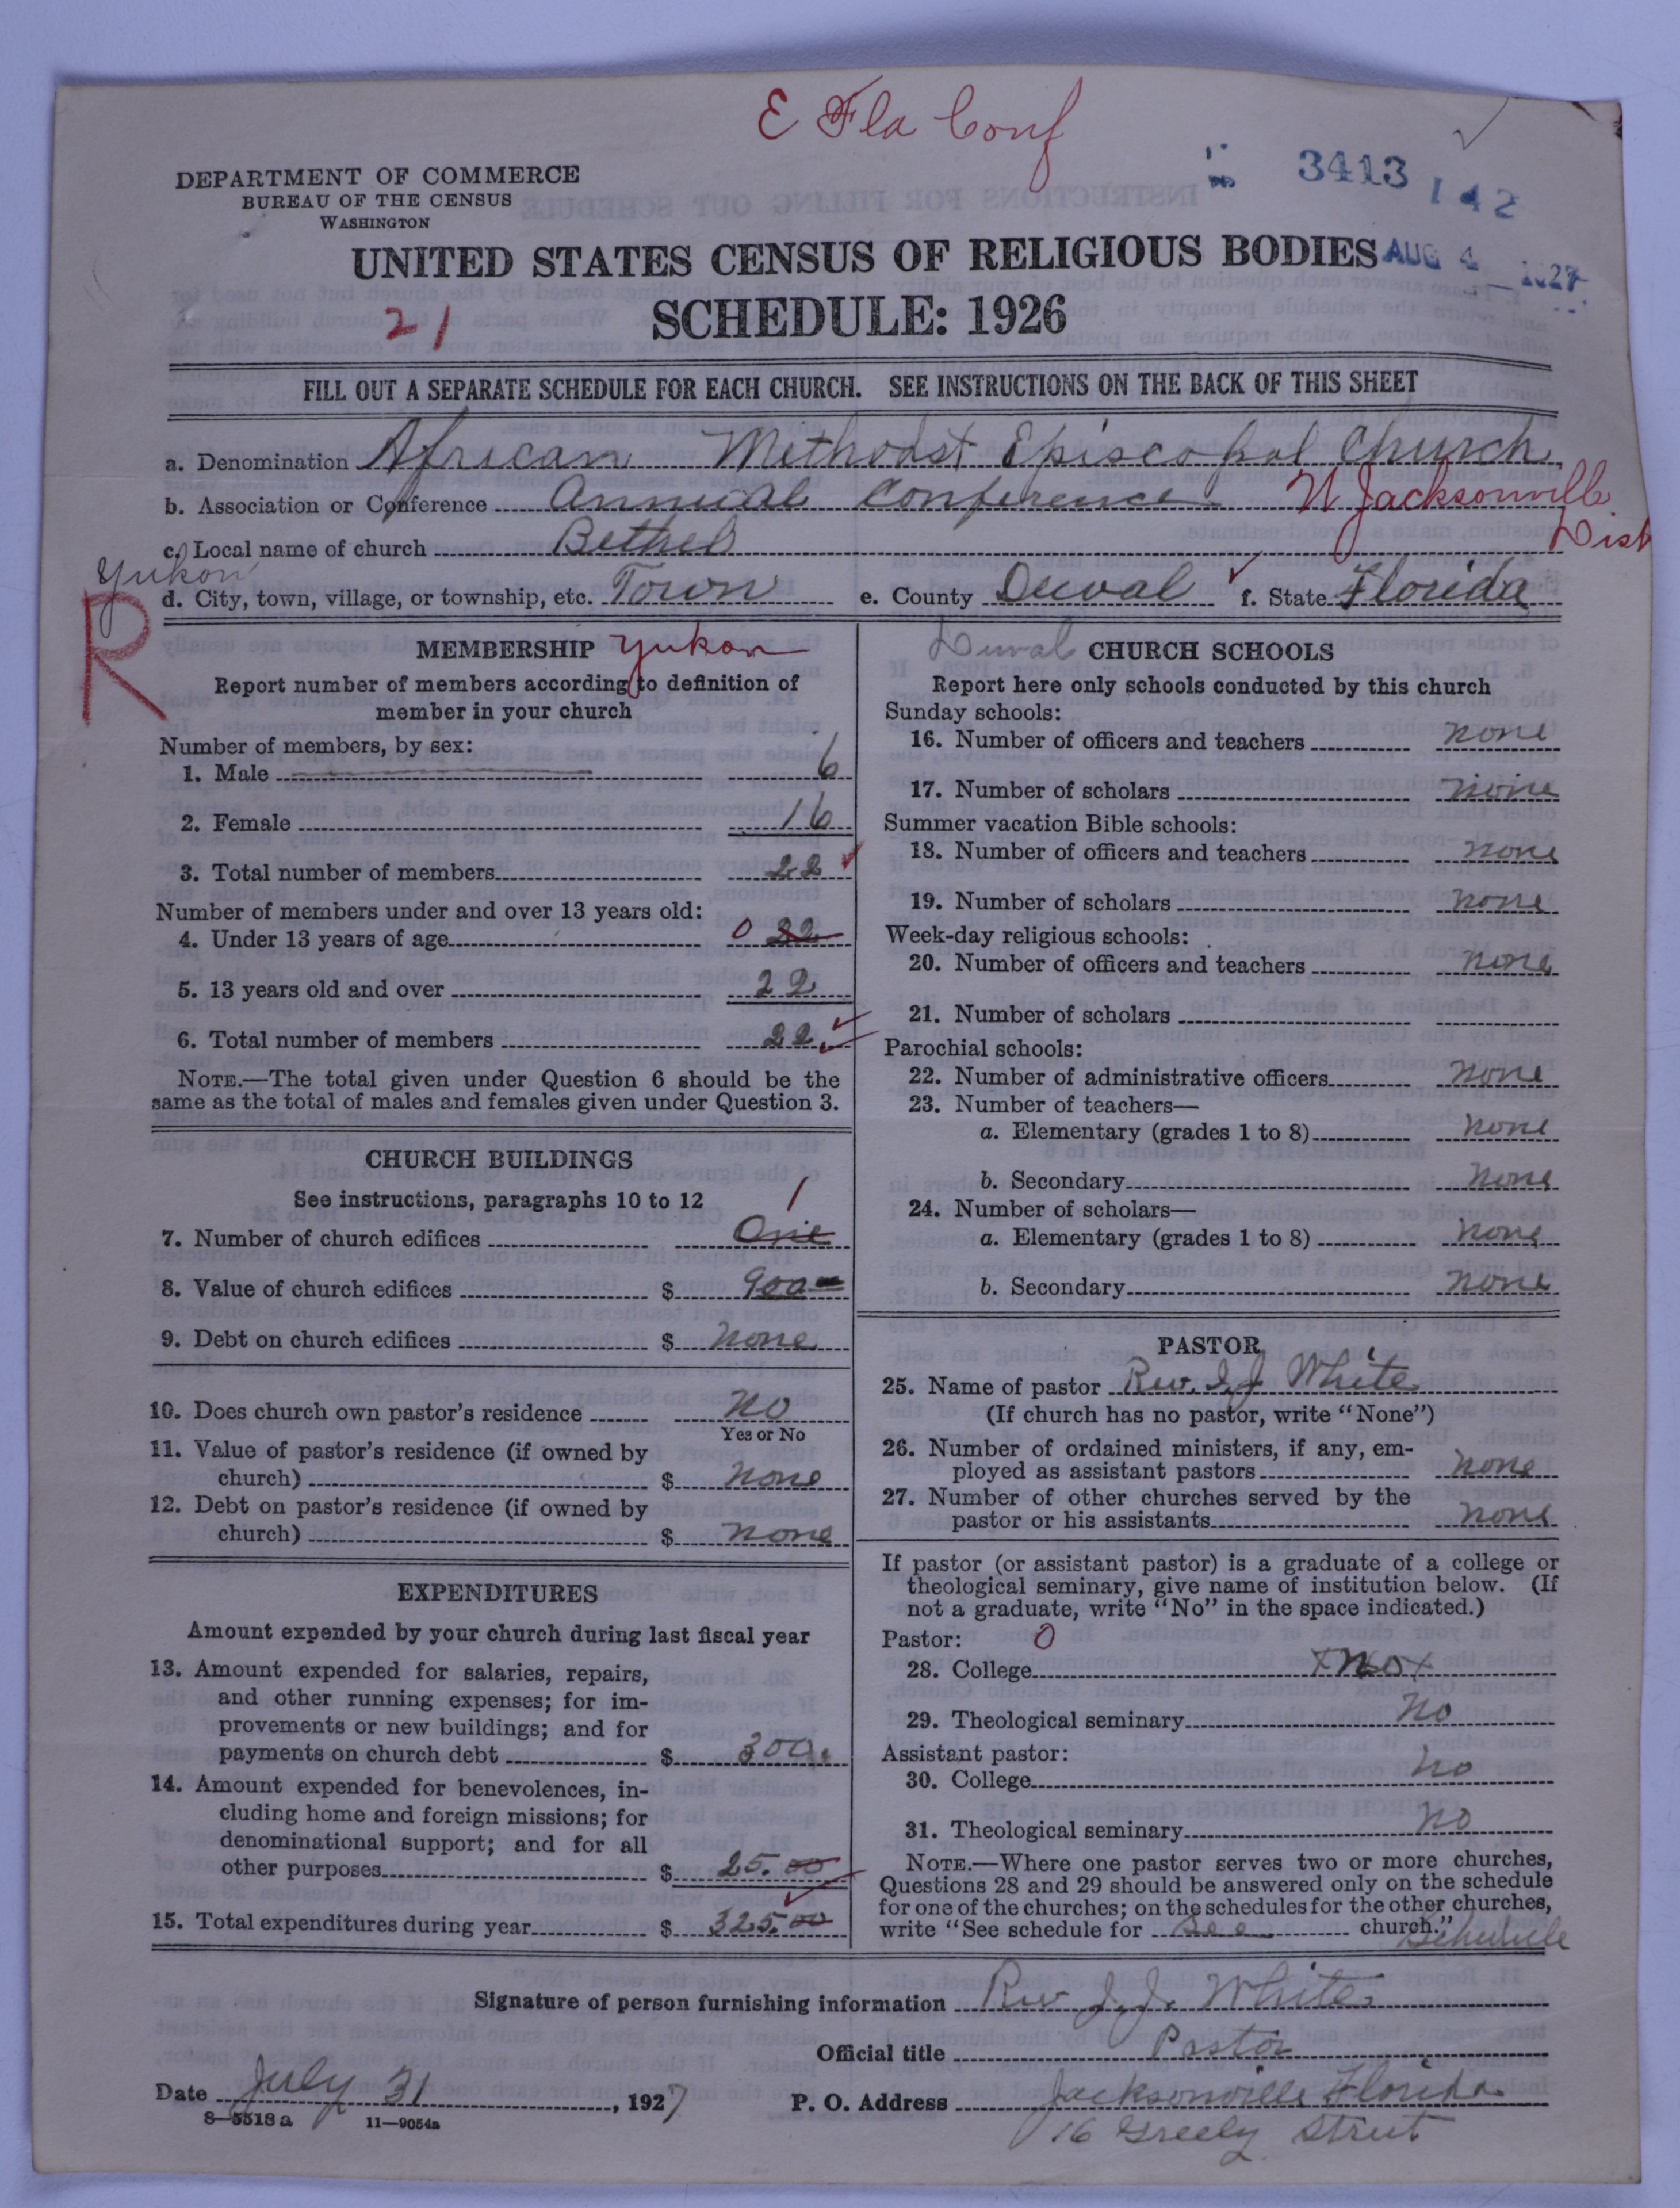 E Fla Conf
3413
142
DEPARTMENT OF COMMERCE
BUREAU OF THE CENSUS
WASHINGTON
UNITED STATES CENSUS OF RELIGIOUS BODIES
AUG 4 - 1927
21
SCHEDULE: 1926
FILL OUT A SEPARATE SCHEDULE FOR EACH CHURCH. SEE INSTRUCTIONS ON THE BACK OF THIS SHEET
a. Denomination African Methodist Episcopal Church
b. Association or Conference Annual Conference N Jacksonville Dist
c. Local name of church Bethel
Yukon
d. City, town, village, or township, etc. Town e. County Duval f. State Florida
R
MEMBERSHIP Yukon
Report number of members according to definition of
member in your church
Number of members, by sex:
1. Male 6
2. Female 16
3. Total number of members 22
Number of members under and over 13 years old:
4. Under 13 years of age 0 22
5. 13 years old and over 22
6. Total number of members 22
NOTE.—The total given under Question 6 should be the
same as the total of males and females given under Question 3.
CHURCH BUILDINGS
See instructions, paragraphs 10 to 12
1
7. Number of church edifices One
8. Value of church edifices $ 900
9. Debt on church edifices $ none
10. Does church own pastor's residence No
Yes or No
11. Value of pastor's residence (if owned by
church) $ none
12. Debt on pastor's residence (if owned by
church) $ none
EXPENDITURES
Amount expended by your church during last fiscal year
13. Amount expended for salaries, repairs,
and other running expenses; for im-
provements or new buildings; and for
payments on church debt $ 300.
14. Amount expended for benevolences, in-
cluding home and foreign missions; for
denominational support; and for all
other purposes $ 25.00
15. Total expenditures during year $ 325.00
Duval CHURCH SCHOOLS
Report here only schools conducted by this church
Sunday schools:
16. Number of officers and teachers none
17. Number of scholars none
Summer vacation Bible schools:
18. Number of officers and teachers none
19. Number of scholars none
Week-day religious schools:
20. Number of officers and teachers none
21. Number of scholars
Parochial schools:
22. Number of administrative officers none
23. Number of teachers—
a. Elementary (grades 1 to 8) none
b. Secondary none
24. Number of scholars—
a. Elementary (grades 1 to 8) none
b. Secondary none
PASTOR
25. Name of pastor Rev. J. J. White
(If church has no pastor, write "None")
26. Number of ordained ministers, if any, em-
ployed as assistant pastors none
27. Number of other churches served by the
pastor or his assistants none
If pastor (or assistant pastor) is a graduate of a college or
theological seminary, give name of institution below. (If
not a graduate, write "No" in the space indicated.)
Pastor: 0
28. College x No x
29. Theological seminary No
Assistant pastor:
30. College no
31. Theological seminary no
NOTE.—Where one pastor serves two or more churches,
Questions 28 and 29 should be answered only on the schedule
for one of the churches; on the schedules for the other churches,
write "See schedule for see church." Schedule
Signature of person furnishing information Rev J. J. White
Official title Pastor
Date July 31, 1927 P. O. Address Jacksonville Florida
8—5518 a 11—9054a
16 Greely Street